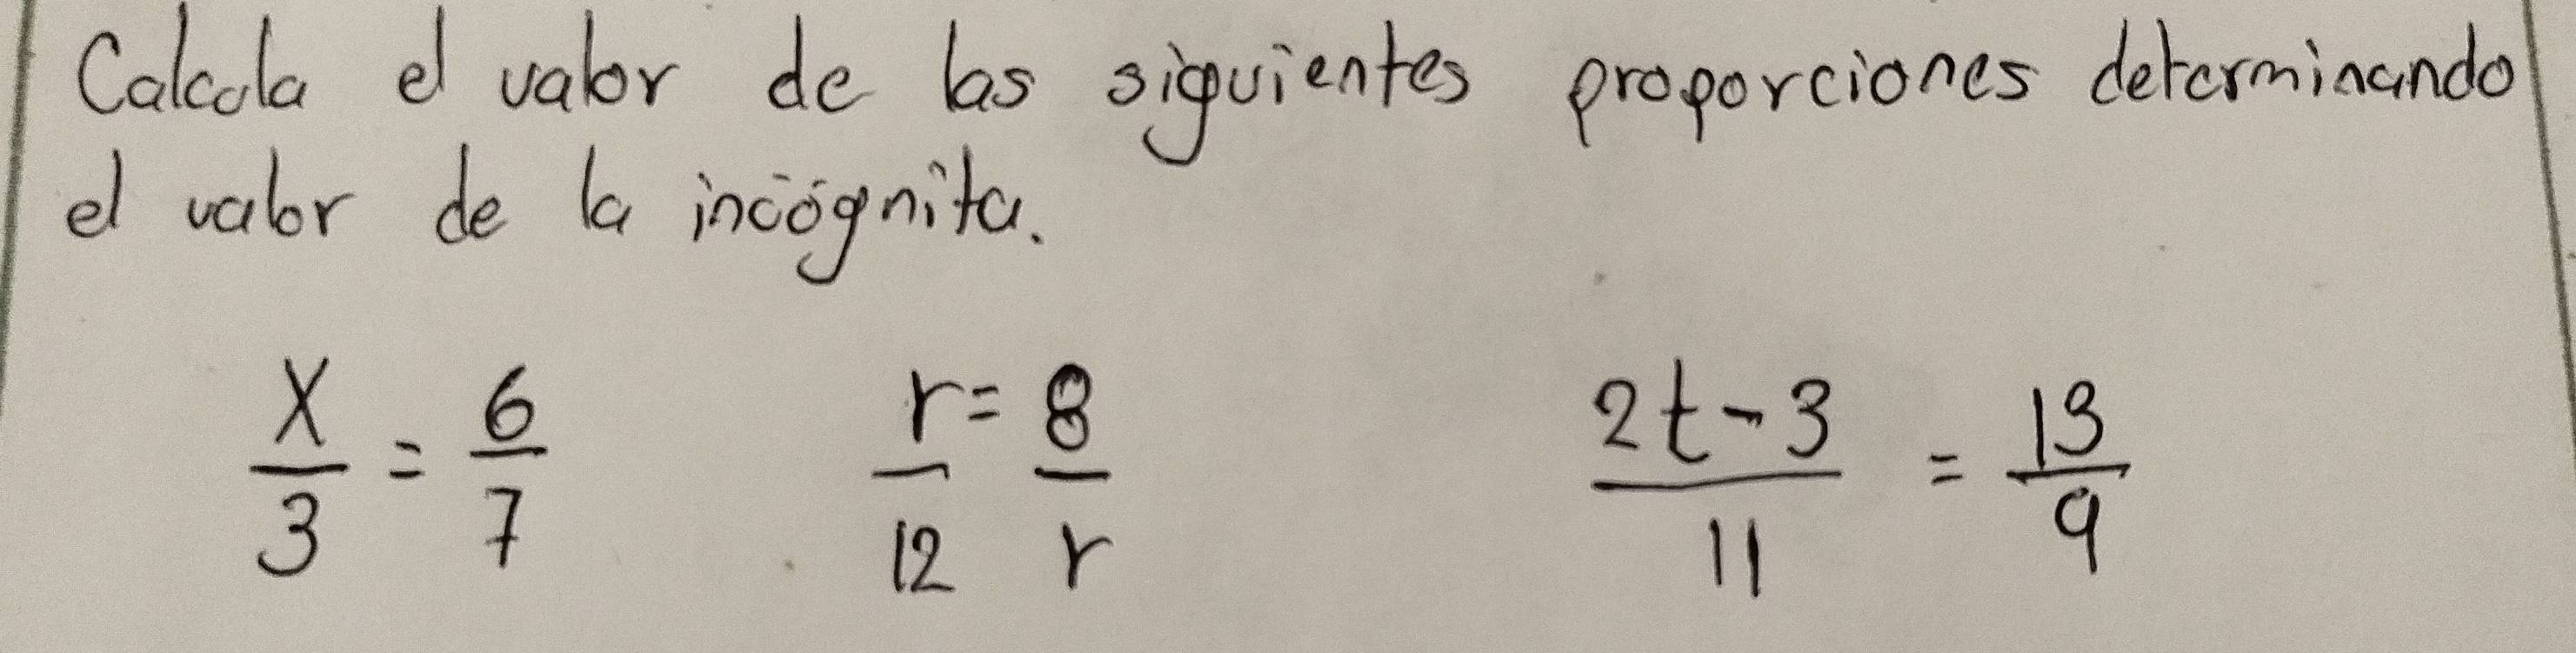 Calcula el valor de las siguientes proporciones determinando
el valor de la incógnita.
x/3 = 6/7 r/12 = 8/r 2t-3/11 = 13/9